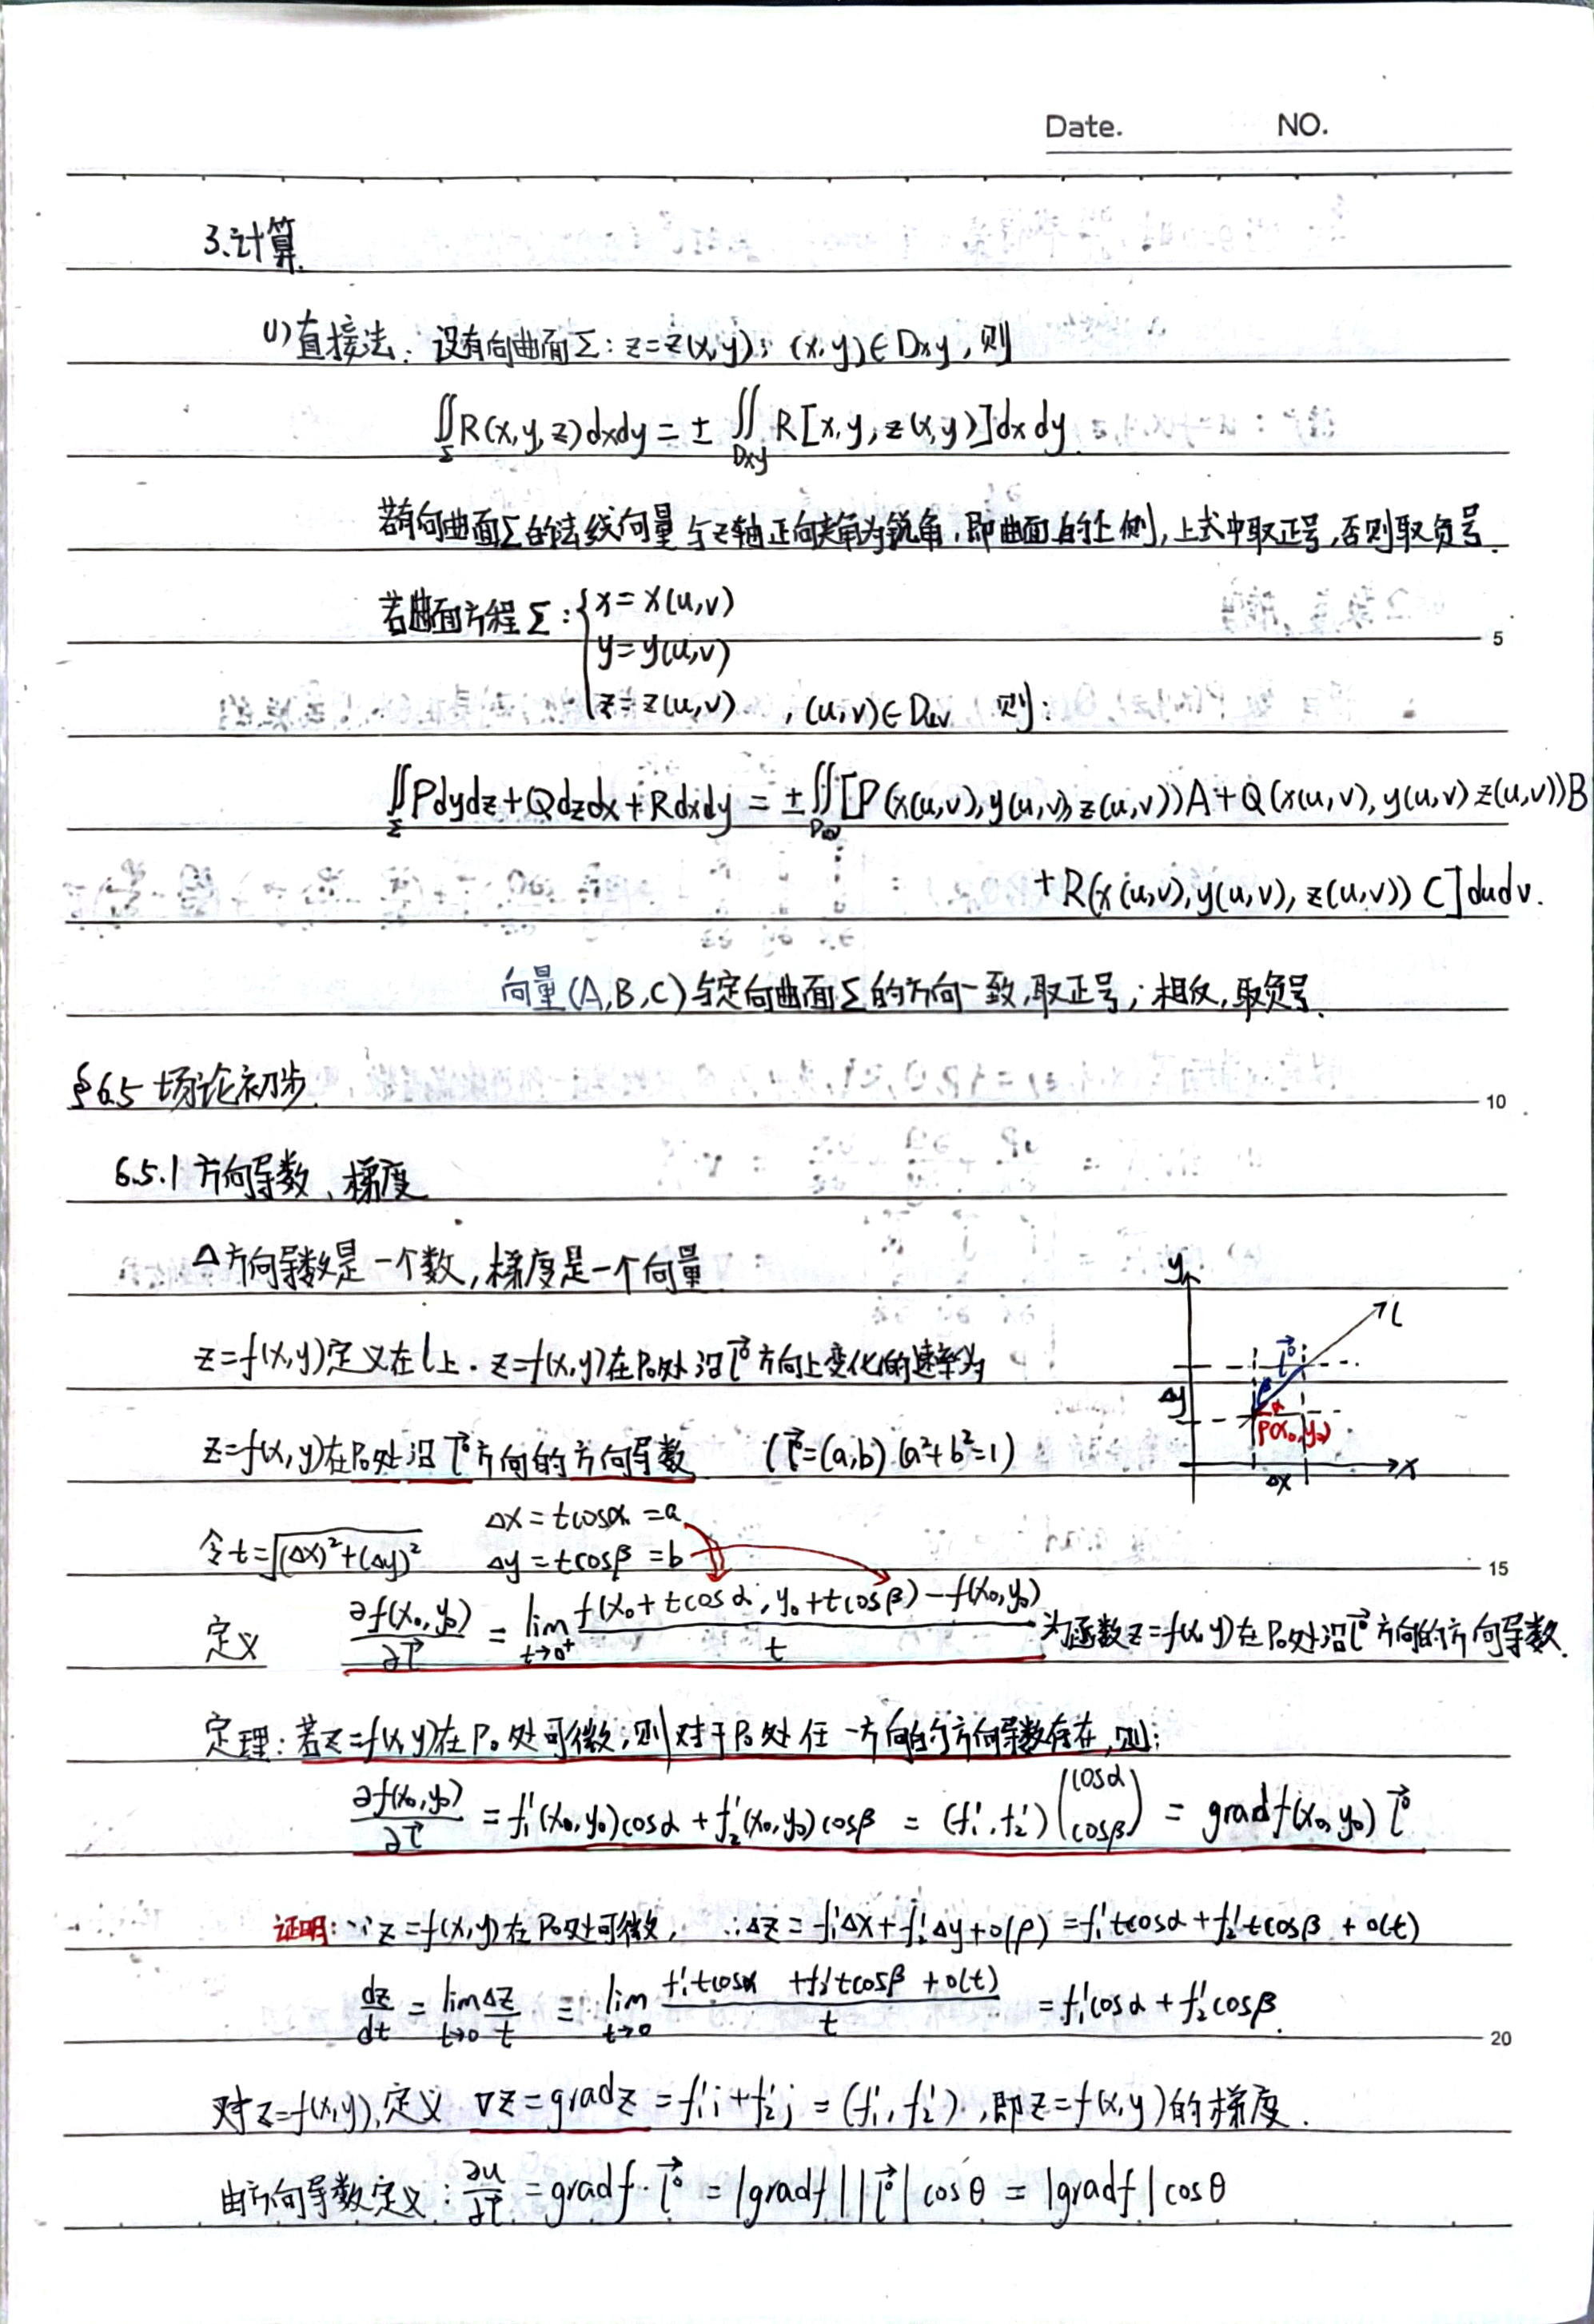 Date. NO.
3.计算.
(1)直接法: 设有向曲面Σ: z=z(x,y); (x,y)∈Dxy, 则
∬_Σ R(x,y,z)dxdy = ± ∬_Dxy R[x,y,z(x,y)]dxdy.
若有向曲面Σ的法线向量与z轴正向夹角为锐角,即曲面的上侧,上式中取正号,否则取负号.
若曲面方程Σ: { x=x(u,v)
y=y(u,v)
z=z(u,v) , (u,v)∈Duv 则:
5
∬_Σ Pdydz+Qdzdx+Rdxdy = ±∬_Duv [P(x(u,v),y(u,v),z(u,v))A+Q(x(u,v),y(u,v) z(u,v))B
+R(x(u,v),y(u,v),z(u,v)) C]dudv.
向量(A,B,C)与定向曲面Σ的方向一致,取正号;相反,取负号.
§6.5 场论初步.
10
6.5.1 方向导数、梯度
△方向导数是一个数,梯度是一个向量
z=f(x,y)定义在l上. z=f(x,y)在P₀处沿l⃗⁰方向上变化的速率为
z=f(x,y)在P₀处沿l⃗⁰方向的方向导数 (l⃗⁰=(a,b) (a²+b²=1)
y
l
l⃗⁰
Δy
β
α
P(x₀,y₀)
Δx
x
令t=√((Δx)²+(Δy)²) Δx=tcosα=a
Δy=tcosβ=b
15
定义 ∂f(x₀,y₀)/∂l⃗ = lim_{t→0⁺} (f(x₀+tcosα, y₀+tcosβ)-f(x₀,y₀))/t 为函数z=f(x,y)在P₀处沿l⃗⁰方向的方向导数.
定理: 若z=f(x,y)在P₀处可微,则对于P₀处任一方向的方向导数存在,则:
∂f(x₀,y₀)/∂l⃗ = f₁'(x₀,y₀)cosα+f₂'(x₀,y₀)cosβ = (f₁',f₂')(cosα cosβ) = gradf(x₀,y₀) l⃗⁰
证明: ∵z=f(x,y)在P₀处可微, ∴Δz=f₁'Δx+f₂'Δy+o(ρ)=f₁'tcosα+f₂'tcosβ+o(t)
dz/dt = lim_{t→0} Δz/t = lim_{t→0} (f₁'tcosα+f₂'tcosβ+o(t))/t = f₁'cosα+f₂'cosβ.
20
对z=f(x,y),定义 ∇z=gradz=f₁'i+f₂'j=(f₁',f₂'),即z=f(x,y)的梯度.
由方向导数定义: ∂u/∂l⃗ = gradf·l⃗⁰ = |gradf||l⃗⁰|cosθ = |gradf|cosθ